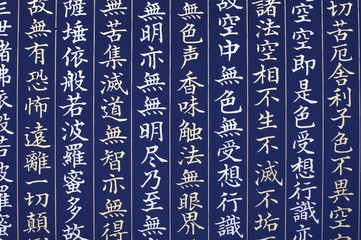 切苦厄舎利子色不異
空空即是色受想行識
諸法空相不生不滅不垢
故空中無色無受想行識
無色声香味触法無眼界
無明亦無無明尽乃至無
無苦集滅道無智亦無得
薩埵依般若波羅蜜多故
故無有恐怖遠離一切顛
三世諸佛依般若波